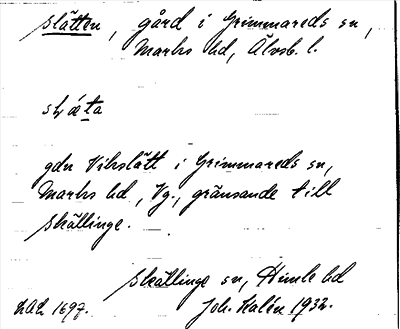 slätten, gård i Grimmareds sn,
Marks hd, Älvsb. l.
gdn Vikslätt i Grimmareds sn,
Marks hd, Vg., gränsande till
Skällinge.
Skällinge sn, Himle hd
1697. Joh. Kalén 1932.